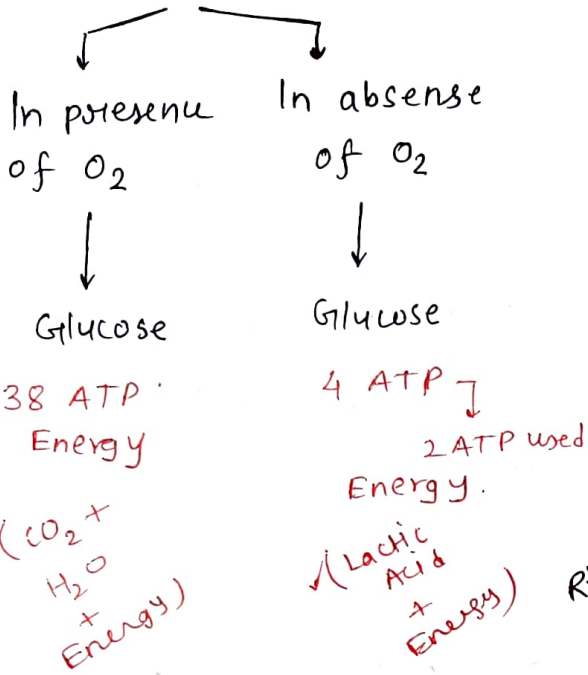 In presence
of O₂
↓
Glucose
38 ATP
Energy
(CO₂ +
H₂O
+
Energy)
In absense
of O₂
↓
Glucose
4 ATP
2 ATP used
Energy.
✓(Lactic
Acid
+
Energy)
R